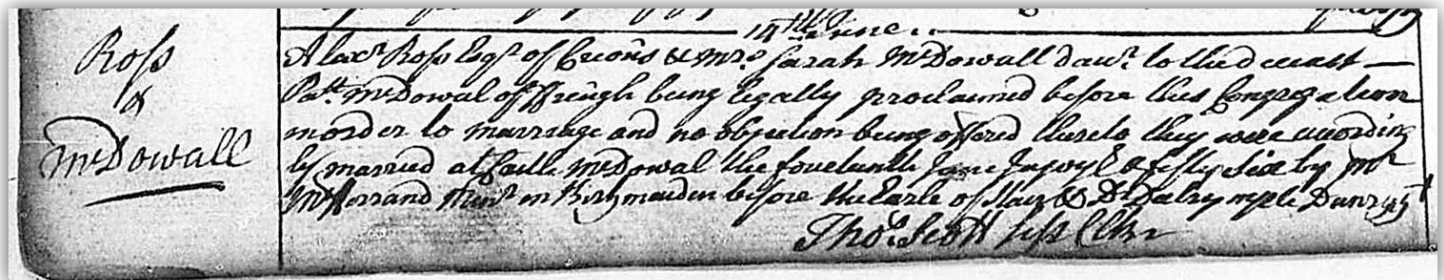 14th June
Ross
&
McDowall
Alexr Ross Esqr of & Mrs Sarah McDowall daur to the deceast
Patk McDowal of Freugh being legally proclaimed before this Congregation
in order to marriage and no objection being offered thereto they were according
ly married at Castle McDowal the fourteenth June & fifty Six by Mr
Minr in Kirkmaiden before the Earle of Stair & Dr Dalrymple
Thos Scott Sess Clk